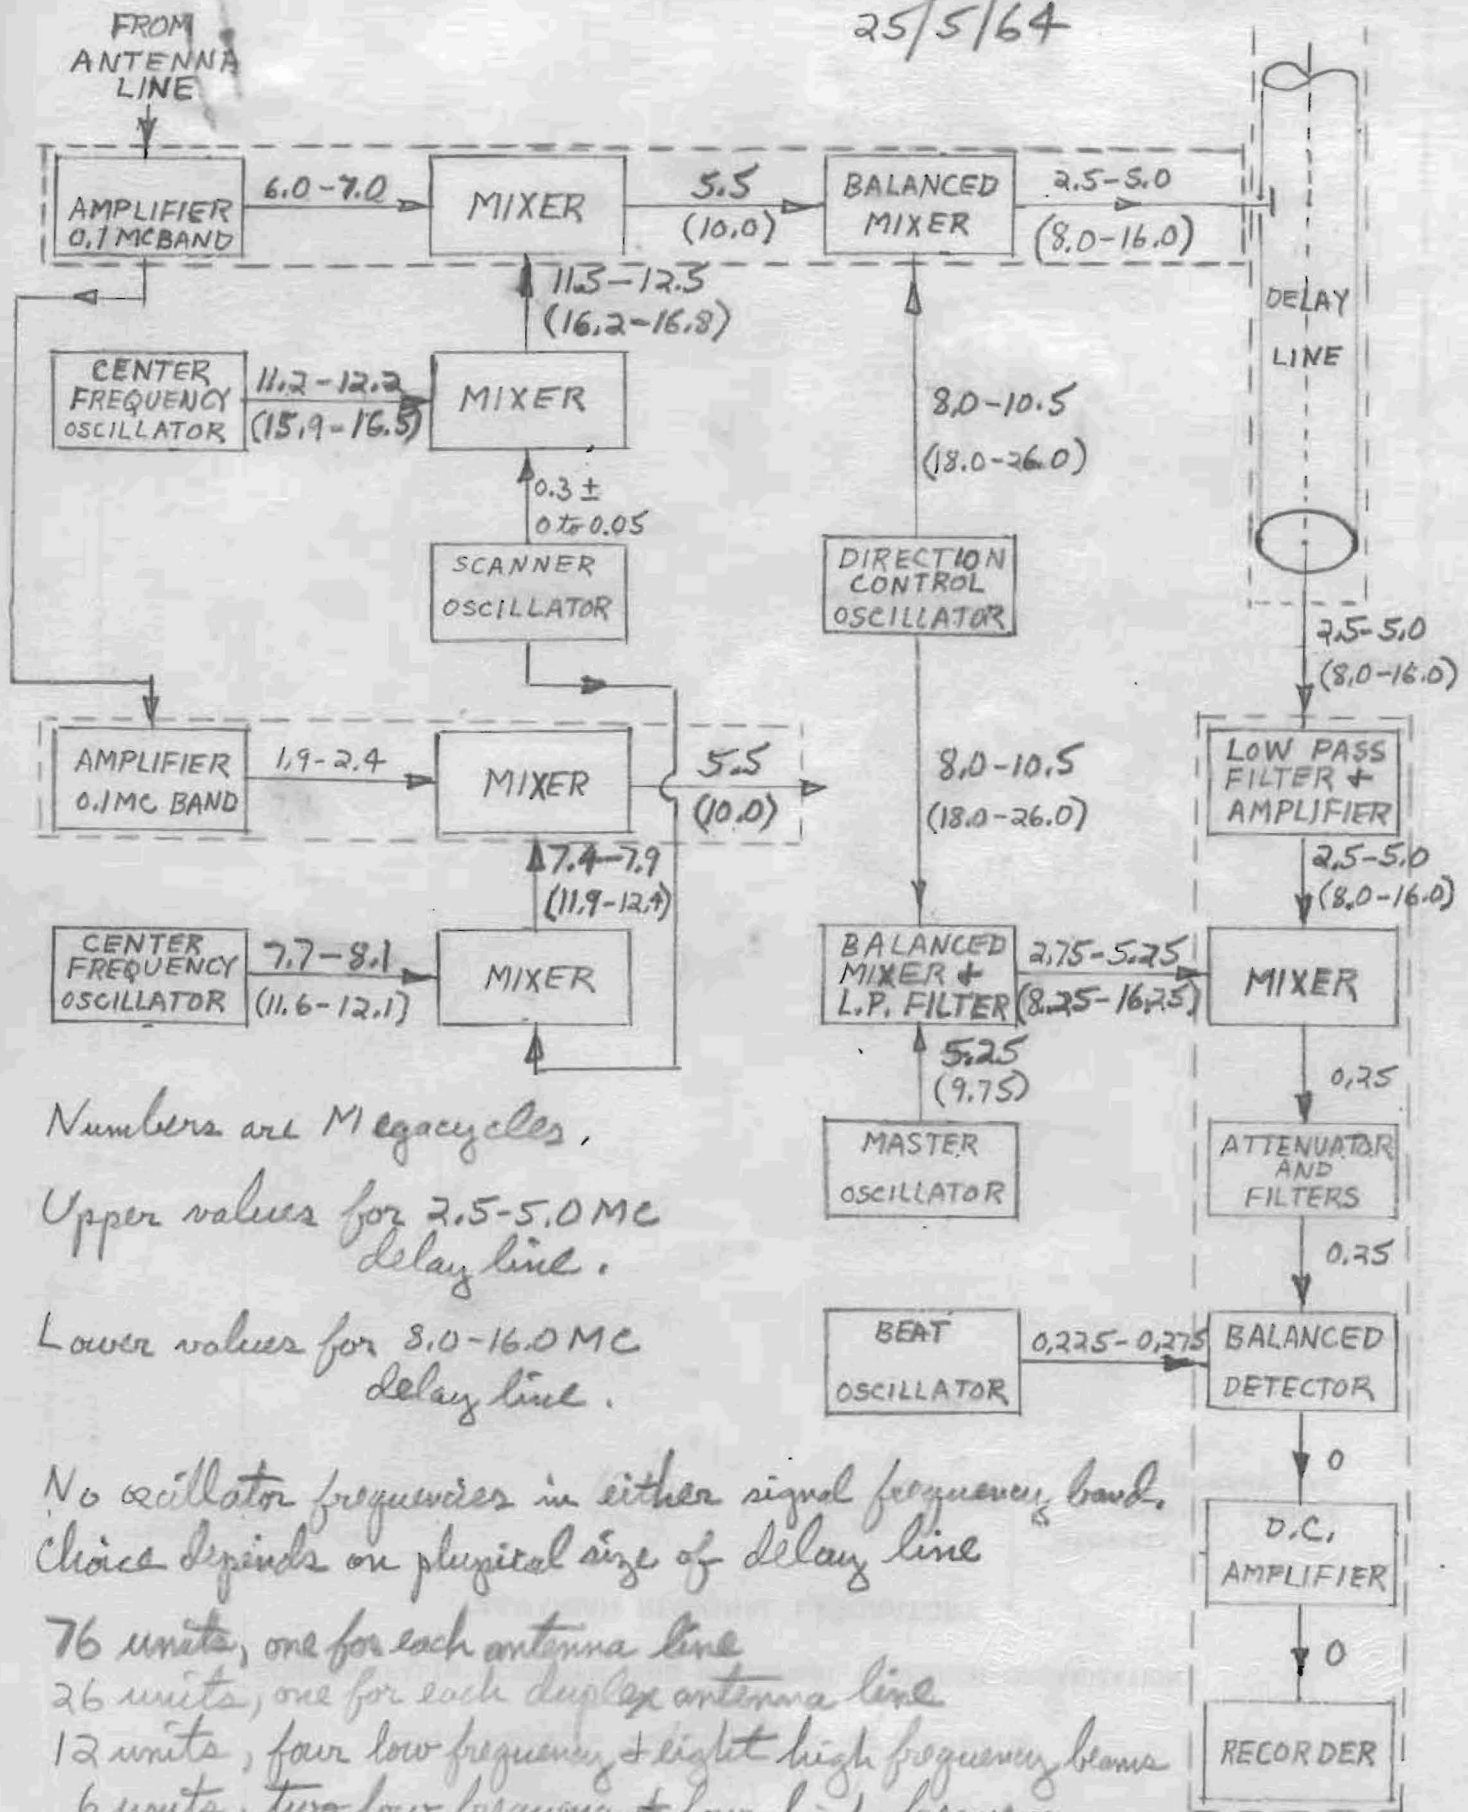 25/5/64
FROM
ANTENNA
LINE
AMPLIFIER
0.1 MC BAND
6.0-7.0
MIXER
5.5
(10.0)
BALANCED
MIXER
2.5-5.0
(8.0-16.0)
DELAY
LINE
11.5-12.5
(16.2-16.8)
CENTER
FREQUENCY
OSCILLATOR
11.2-12.2
(15.9-16.5)
MIXER
8.0-10.5
(18.0-26.0)
0.3 ±
0 to 0.05
SCANNER
OSCILLATOR
DIRECTION
CONTROL
OSCILLATOR
2.5-5.0
(8.0-16.0)
AMPLIFIER
0.1 MC BAND
1.9-2.4
MIXER
5.5
(10.0)
8.0-10.5
(18.0-26.0)
LOW PASS
FILTER +
AMPLIFIER
2.5-5.0
(8.0-16.0)
7.4-7.9
(11.9-12.4)
CENTER
FREQUENCY
OSCILLATOR
7.7-8.1
(11.6-12.1)
MIXER
BALANCED
MIXER +
L.P. FILTER
2.75-5.25
(8.25-16.25)
MIXER
5.25
(9.75)
0.25
MASTER
OSCILLATOR
ATTENUATOR
AND
FILTERS
0.25
BEAT
OSCILLATOR
0.225-0.275
BALANCED
DETECTOR
0
D.C.
AMPLIFIER
0
RECORDER
Numbers are Megacycles.
Upper values for 2.5-5.0 MC
delay line.
Lower values for 8.0-16.0 MC
delay line.
No oscillator frequencies in either signal frequency band.
Choice depends on physical size of delay line
76 units, one for each antenna line
26 units, one for each duplex antenna line
12 units, four low frequency + eight high frequency beams
6 units, two low frequency + four high